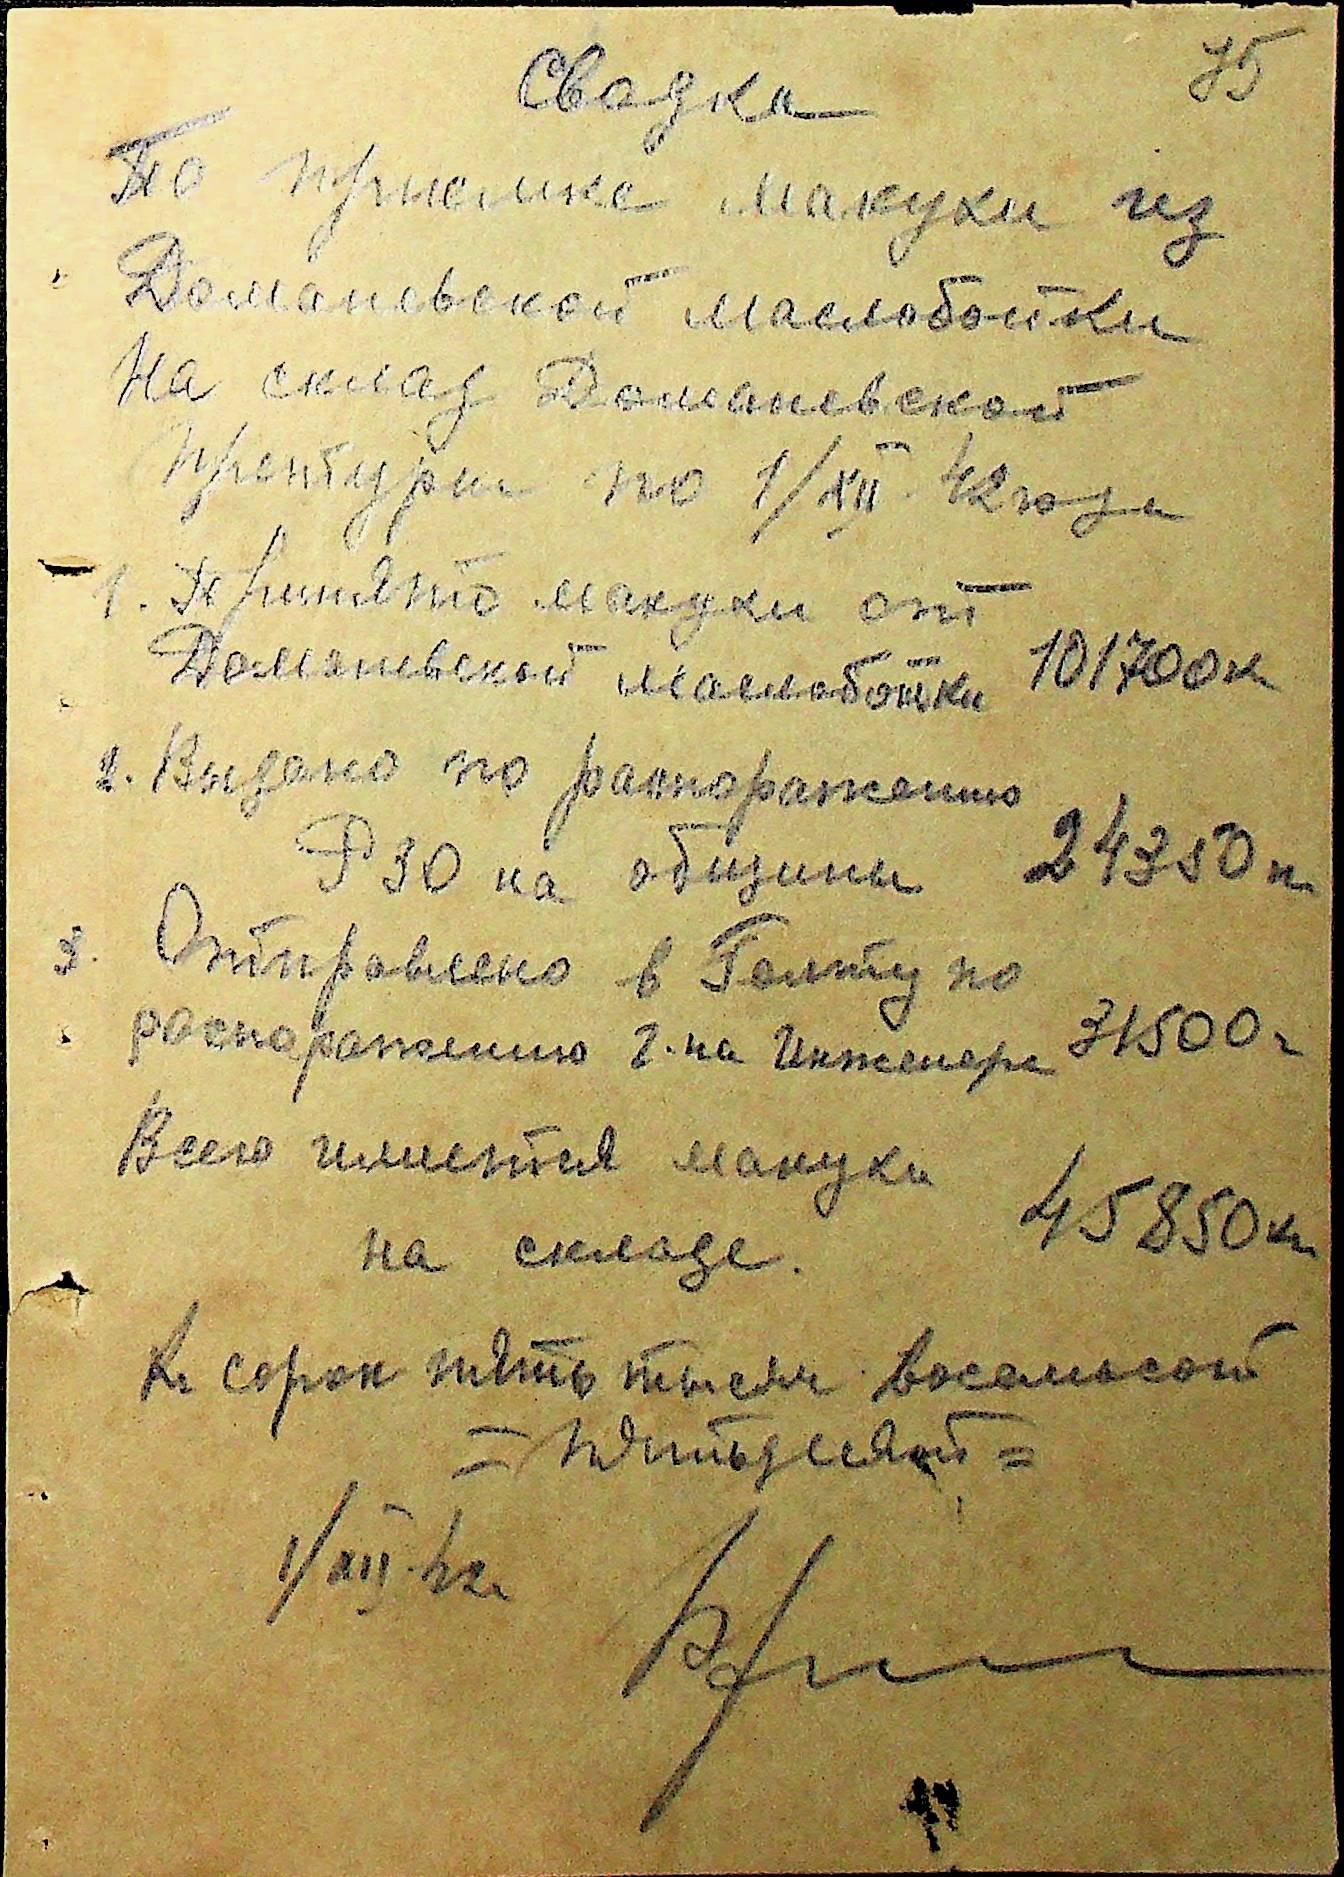 75
Свадка
По приемке макухи из
Доманевской маслобойки
На склад Доманевской
претуры по 1/XII 42 года
1. Принято макухи от
Доманевской маслобойки 101700 к
2. Выдано по распоражению
РЗО на общины 24350 к
3. Отправлено в Голту по
распоражению г-на Инженера 31500 к
Всего имеется макухи
на складе. 45850 кг
Кг сорок пять тысяч восемьсот
= пятьдесят =
1/XII 42 г